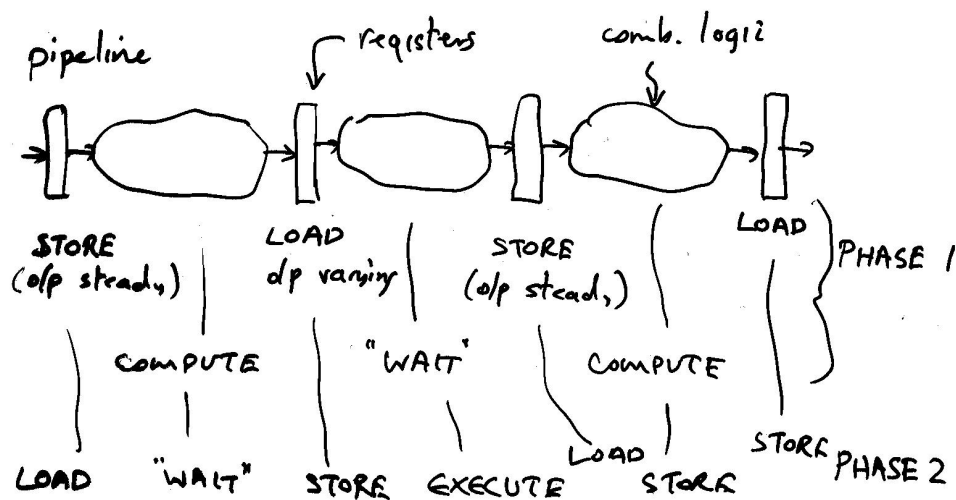 pipeline
registers
comb. logic
STORE
(o/p steady)
LOAD
o/p varying
STORE
(o/p steady)
LOAD
PHASE 1
COMPUTE
"WAIT"
COMPUTE
LOAD
"WAIT"
STORE
EXECUTE
LOAD
STORE
STORE
PHASE 2